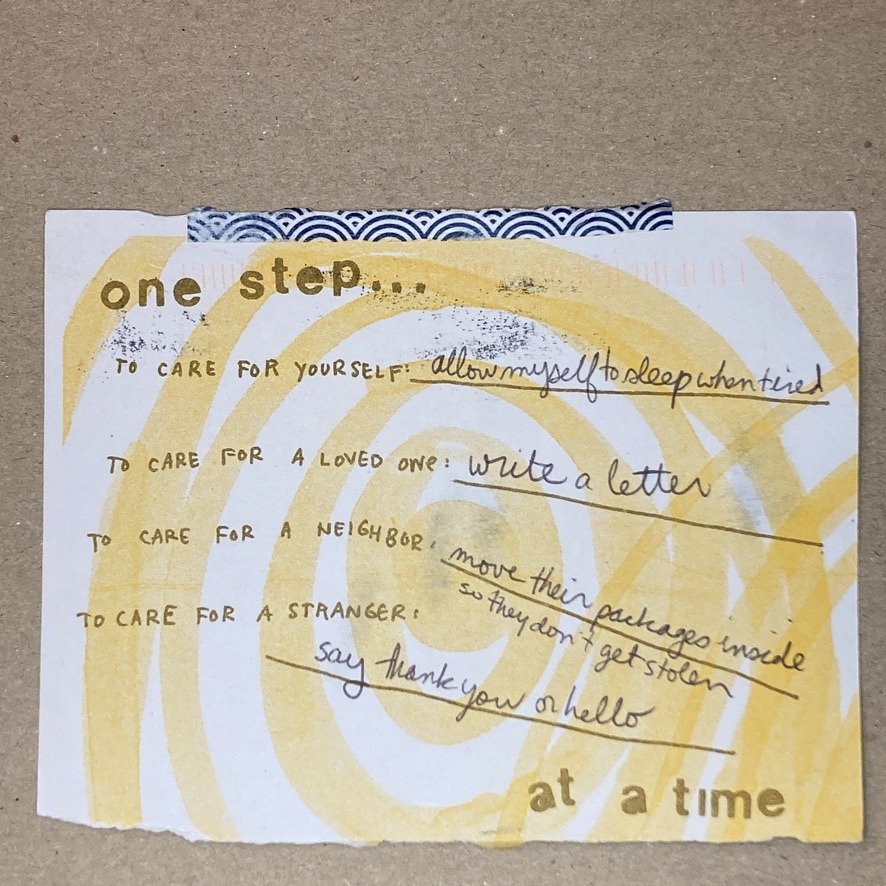 one step...
TO CARE FOR YOURSELF: allow myself to sleep when tired
TO CARE FOR A LOVED ONe: write a letter
TO CARE FOR A NEIGHBOR: move their packages inside
so they don't get stolen
TO CARE FOR A STRANGER:
say thank you or hello
at a time